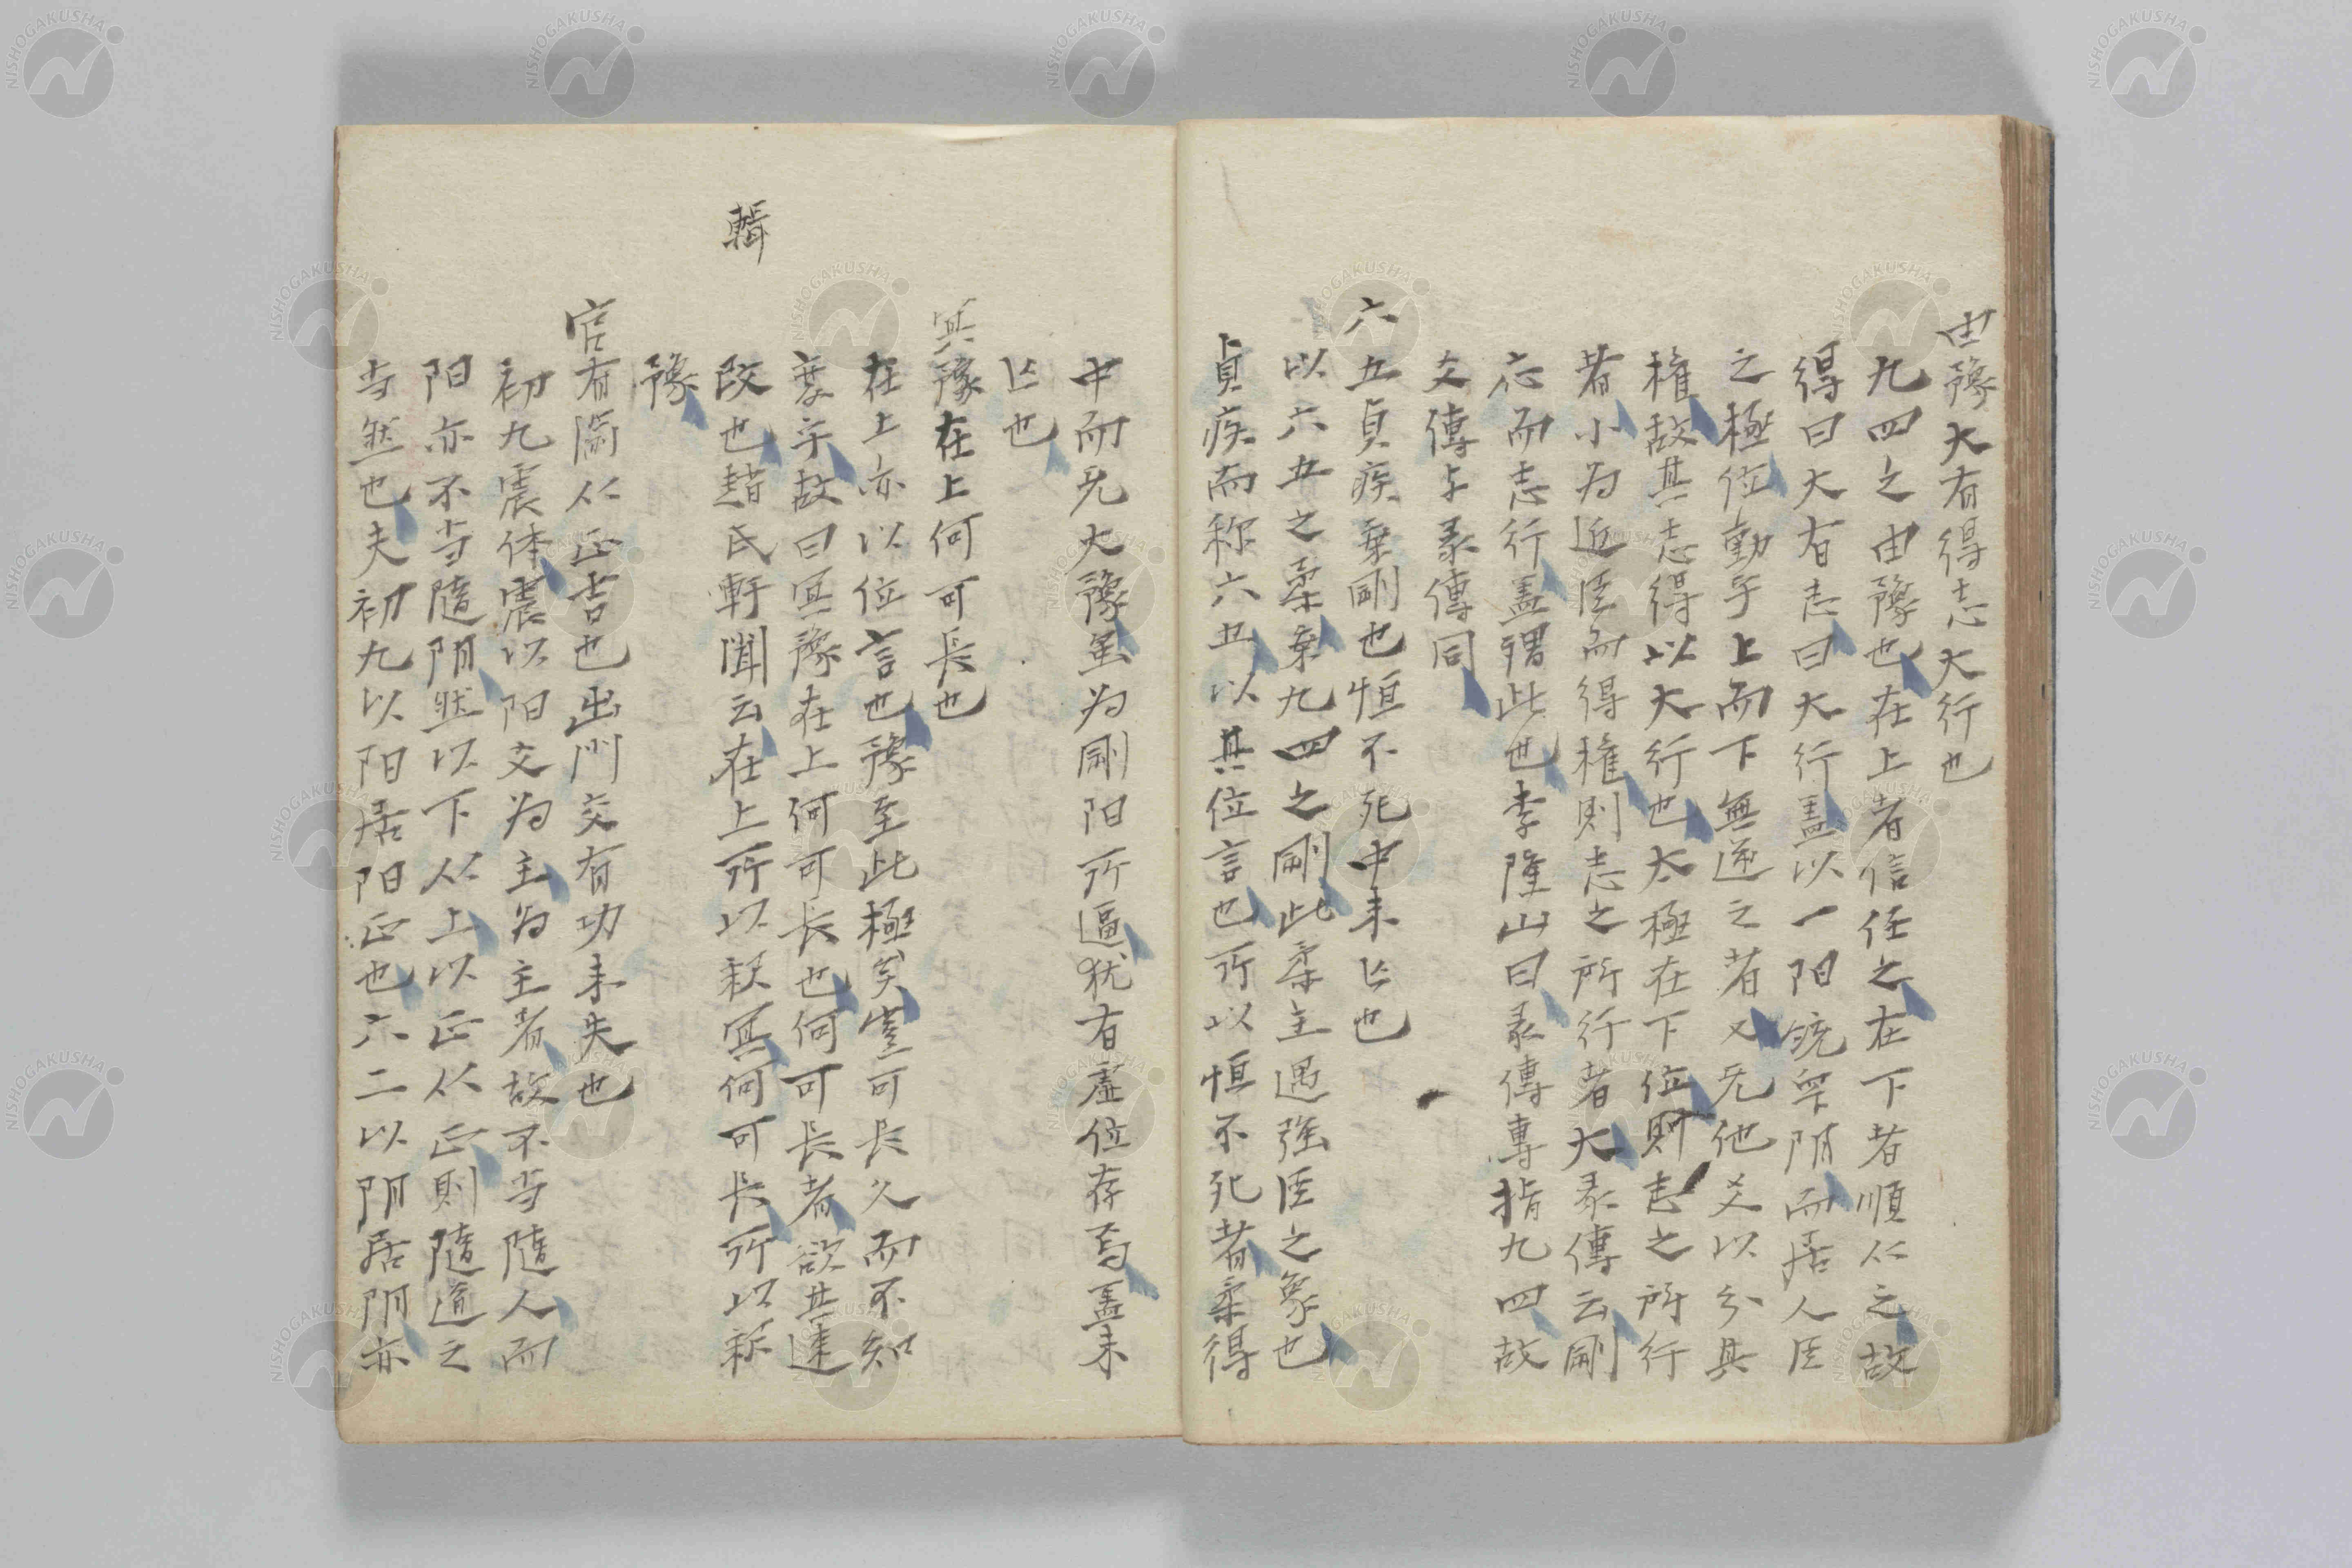 由豫大有得志大行也
九四之由豫也在上者信任之在下者順从之故
得曰大有志曰大行盖以一阳统罕阴而居人臣
之極位動乎上而下無逆之者又无他爻以分其
權故其志得以大行也太極在下位則志之所行
者小为近臣而得權則志之所行者大彖傳云剛
応而志行盖謂此也李隆山曰彖傳專指九四故
爻傳与彖傳同
六五貞疾乗剛也恒不死中未亡也
以六五之柔乗九四之剛此柔主遇強臣之象也
貞疾而称六五以其位言也所以恒不死者柔得
中而无大豫虽为剛阳所逼犹有虚位存焉盖未
亡也
冥豫在上何可長也
在上亦以位言也豫至此極矣豈可長久而不知
变乎故曰冥豫在上何可長也何可長者欲其速
改也趙氏軒聞云在上所以釈冥何可長所以釈
輯
豫
官有渝从正吉也出門交有功未失也
初九震体震以阳爻为主为主者故不当隨人而
阳亦不当隨阴然以下从上以正从正則隨道之
当然也夫初九以阳居阳正也六二以阴居阴亦